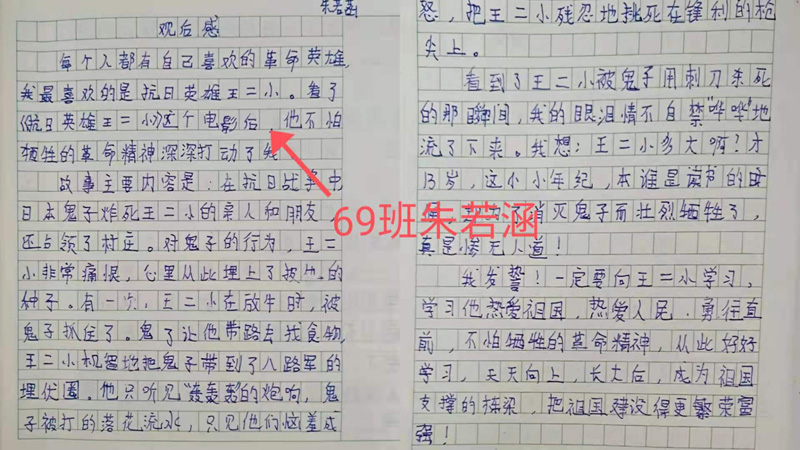 朱若涵
观后感
每个人都有自己喜欢的革命英雄,
我最喜欢的是抗日英雄王二小。看了
《抗日英雄王二小》这个电影后,他不怕
牺牲的革命精神深深打动了我
故事主要内容是:在抗日战争中
日本鬼子炸死王二小的亲人和朋友,
还占领了村庄。对鬼子的行为,王二
小非常痛恨,心里从此埋上了报仇的
种子。有一次,王二小在放牛时,被
鬼子抓住了。鬼子让他带路去找食物,
王二小机智地把鬼子带到了八路军的
埋伏圈。他只听见“轰轰轰”的炮响,鬼
子被打的落花流水,只见他们恼羞成
69班朱若涵
怒,把王二小残忍地挑死在锋利的枪
尖上。
看到了王二小被鬼子用刺刀杀死
的那瞬间,我的眼泪情不自禁“哗哗”地
流了下来。我想:王二小多大啊?才
13岁,这个小年纪,本谁是读书的时
消灭鬼子而壮烈牺牲了,
真是惨无人道!
我发誓!一定要向王二小学习,
学习他热爱祖国,热爱人民,勇往直
前,不怕牺牲的革命精神,从此好好
学习,天天向上,长大后,成为祖国
支撑的栋梁,把祖国建设得更繁荣富
强!